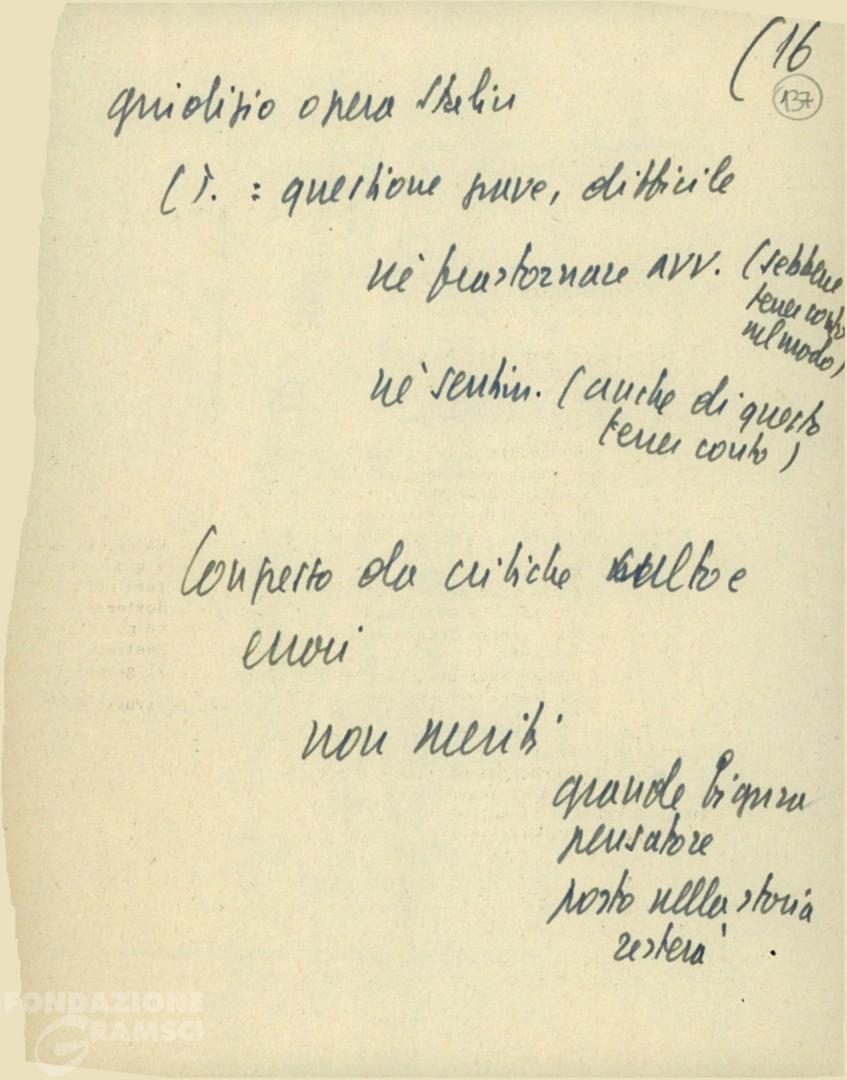 (16
137
giudizio opera Stalin
( T. : questione grave, difficile
nè frastornare avv. (sebbene
tener conto
nel modo)
nè sentim. (anche di questo
tener conto)
Congresso da critiche culto e
errori
non meriti
grande figura
pensatore
posto nella storia
resterà
FONDAZIONE
GRAMSCI